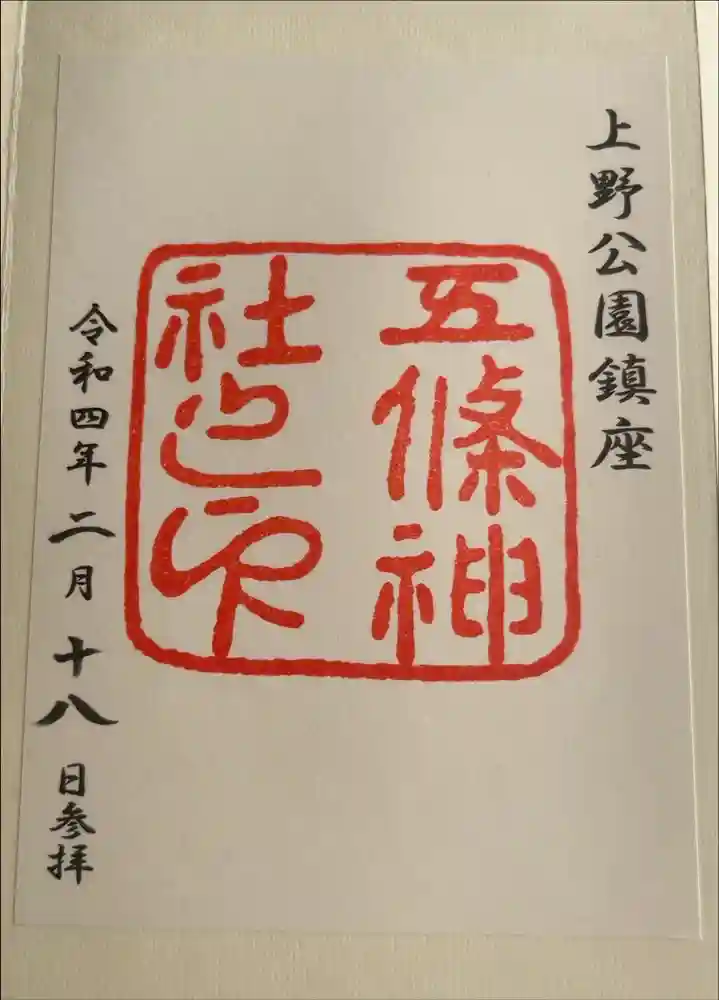 上野公園鎮座
五條神
社之印
令和四年二月十八日参拝